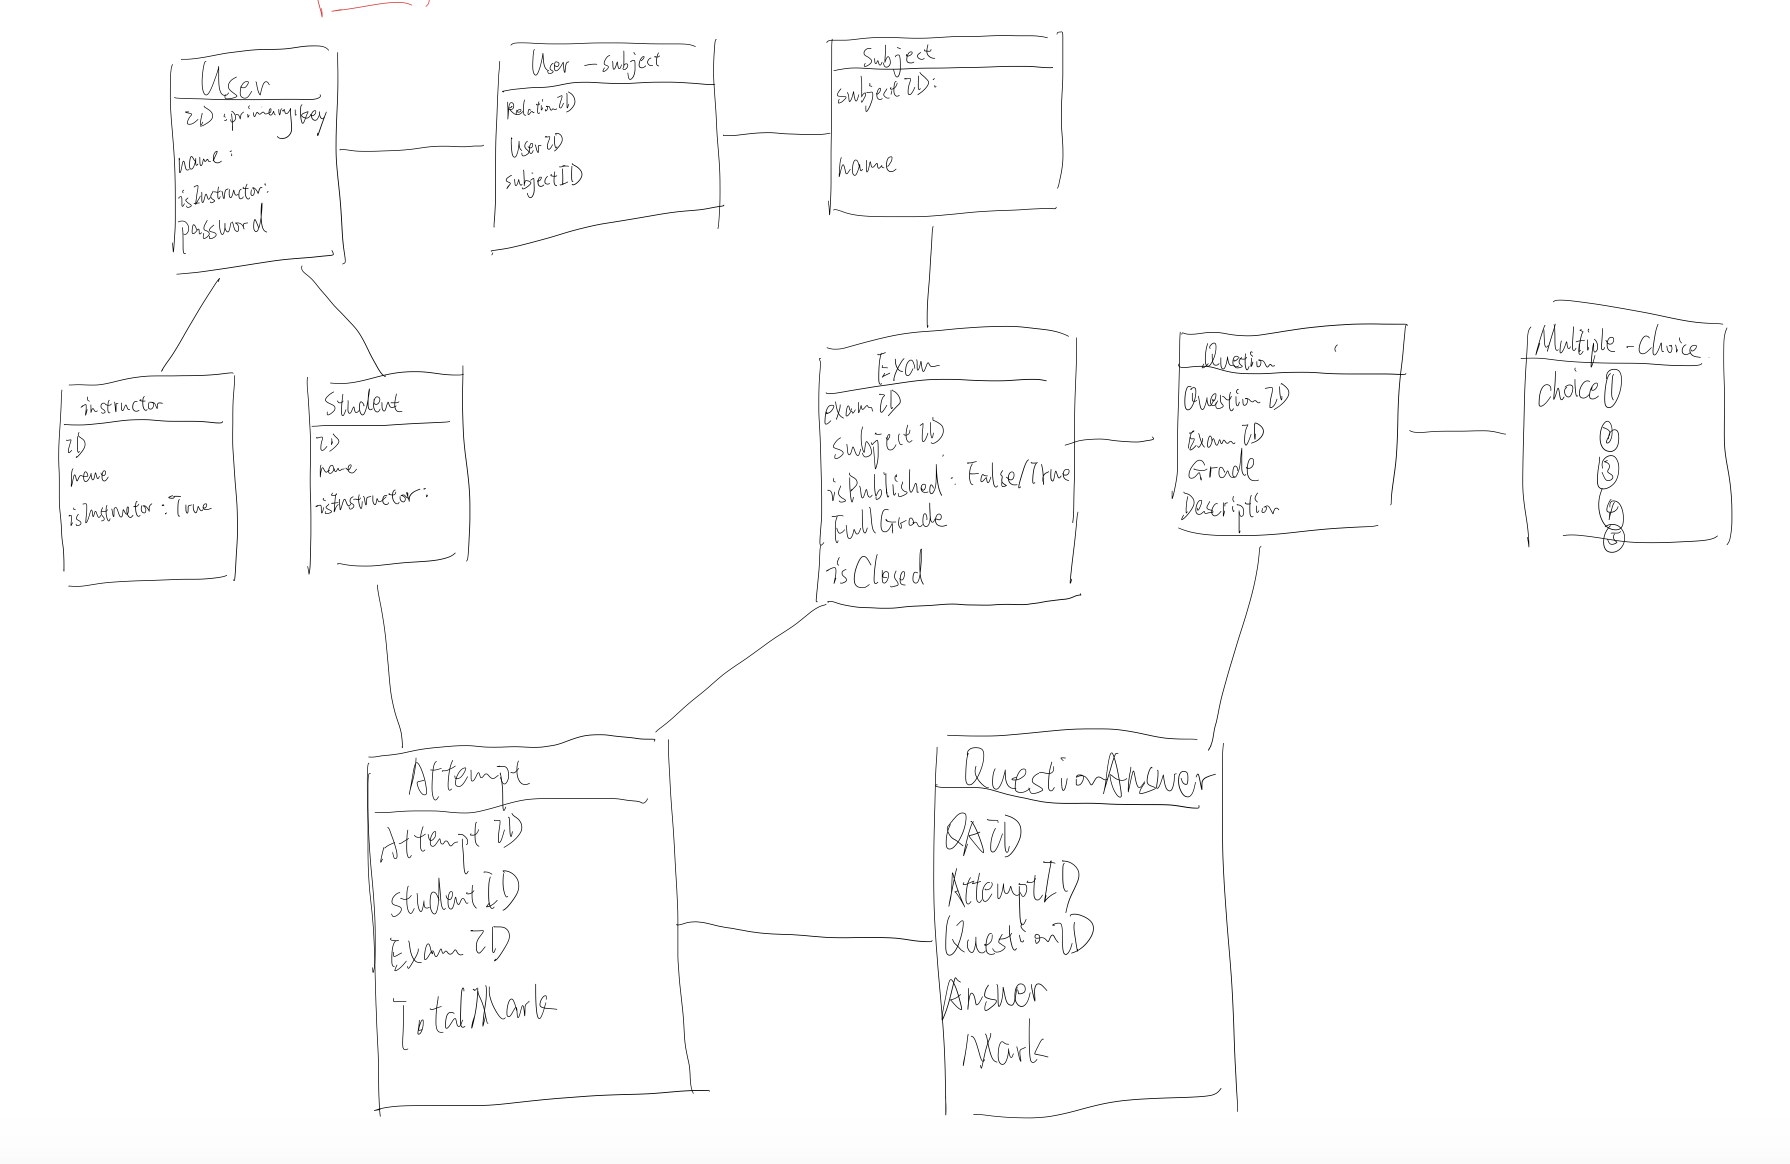 User
ID : primary key
name :
isInstructor:
password
User - subject
RelationID
UserID
subjectID
Subject
subjectID:
name
instructor
ID
name
isInstructor : True
Student
ID
name
isInstructor :
Exam
examID
subjectID
isPublished : False/True
FullGrade
isClosed
Question
QuestionID
ExamID
Grade
Description
Multiple - Choice
choice ①
②
③
④
⑤
Attempt
AttemptID
studentID
ExamID
TotalMark
QuestionAnswer
QAID
AttemptID
QuestionID
Answer
Mark